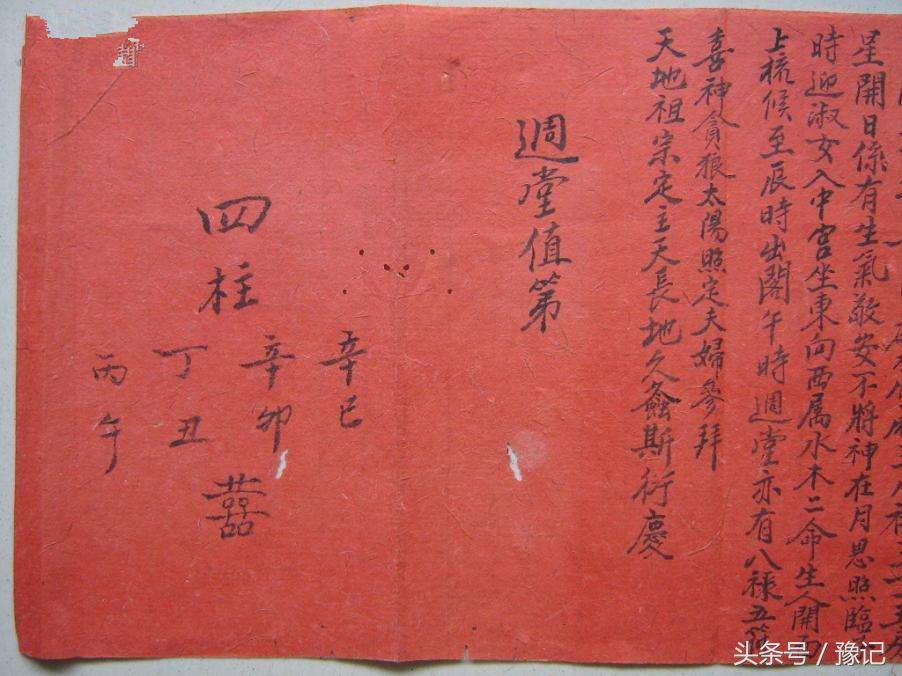 星開日係有生氣敬安不將神在月恩照臨
時迎淑女入中宮坐東向西属水木二命生人開面
上梳候至辰時出閣午時週堂亦有八祿五
喜神貪狼太陽照定夫婦參拜
天地祖宗定主天長地久螽斯衍慶
週堂值第
四柱
辛巳
辛卯
丁丑
丙午
囍
趙
头条号 / 豫记